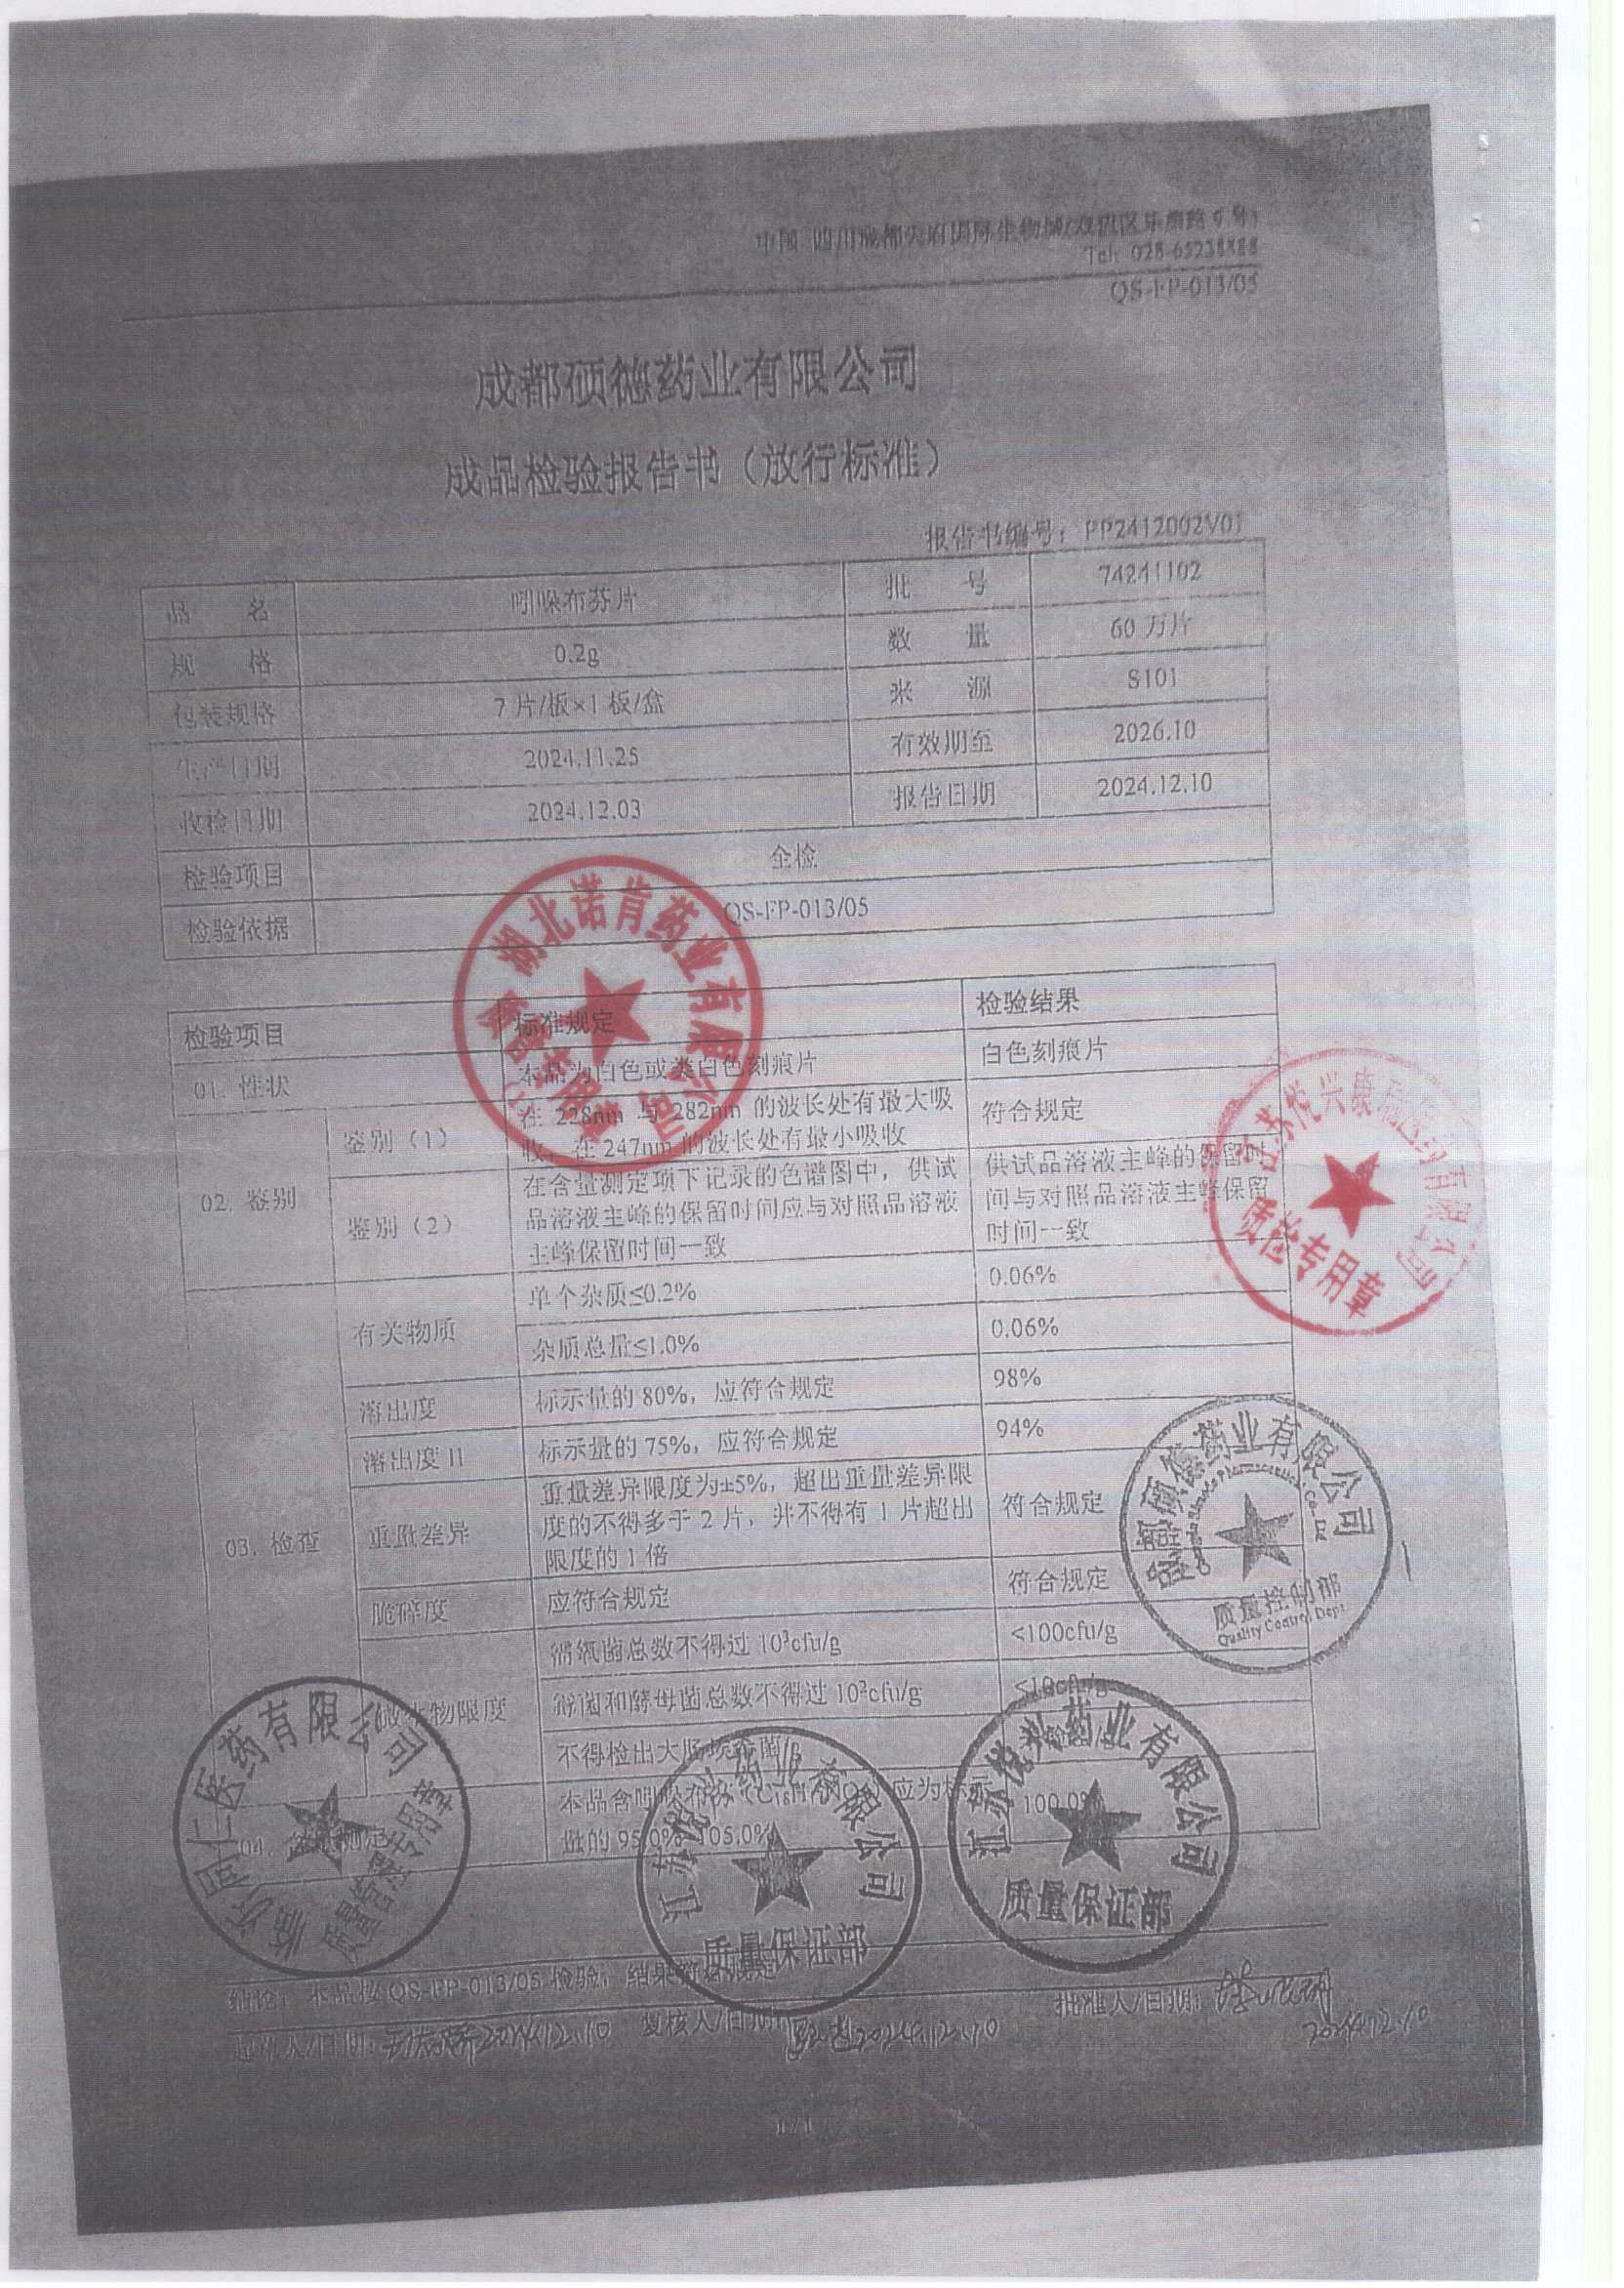 中国 四川成都天府国际生物城(双流区乐康路9号)
Tel: 028-65238888
QS-FP-013/05
成都硕德药业有限公司
成品检验报告书（放行标准）
报告书编号：FP2412002V01
品 名 吲哚布芬片 批 号 74241102
规 格 0.2g 数 量 60 万片
包装规格 7 片/板×1 板/盒 来 源 S101
生产日期 2024.11.25 有效期至 2026.10
收检日期 2024.12.03 报告日期 2024.12.10
检验项目 全检
检验依据 QS-FP-013/05
检验项目 标准规定 检验结果
01. 性状 本品为白色或类白色刻痕片 白色刻痕片
02. 鉴别 鉴别（1） 在 228nm 与 282nm 的波长处有最大吸 符合规定
收，在 247nm 的波长处有最小吸收
鉴别（2） 在含量测定项下记录的色谱图中，供试 供试品溶液主峰的保留时
品溶液主峰的保留时间应与对照品溶液 间与对照品溶液主峰保留
主峰保留时间一致 时间一致
03. 检查 有关物质 单个杂质≤0.2% 0.06%
杂质总量≤1.0% 0.06%
溶出度 标示量的 80%，应符合规定 98%
溶出度 II 标示量的 75%，应符合规定 94%
重量差异 重量差异限度为±5%，超出重量差异限 符合规定
度的不得多于 2 片，并不得有 1 片超出
限度的 1 倍
脆碎度 应符合规定 符合规定
微生物限度 需氧菌总数不得过 10³cfu/g <100cfu/g
霉菌和酵母菌总数不得过 10²cfu/g <10cfu/g
不得检出大肠埃希菌
04. 含量测定 本品含吲哚布芬 应为标示 100.0%
量的 95.0%~105.0%
结论：本品按 QS-FP-013/05 检验，结果符合规定
2024.12.10 复核人/日期： 2024.12.10 批准人/日期：
2024.12.10
1 / 1
湖北诺肯药业有限公司
江苏悦兴康瑞医药有限公司
质检专用章
成都硕德药业有限公司
质量控制部
Quality Control Dept.
临沂同仁医药有限公司
质量管理专用章
江苏悦兴药业有限公司
质量保证部
江苏悦兴药业有限公司
质量保证部